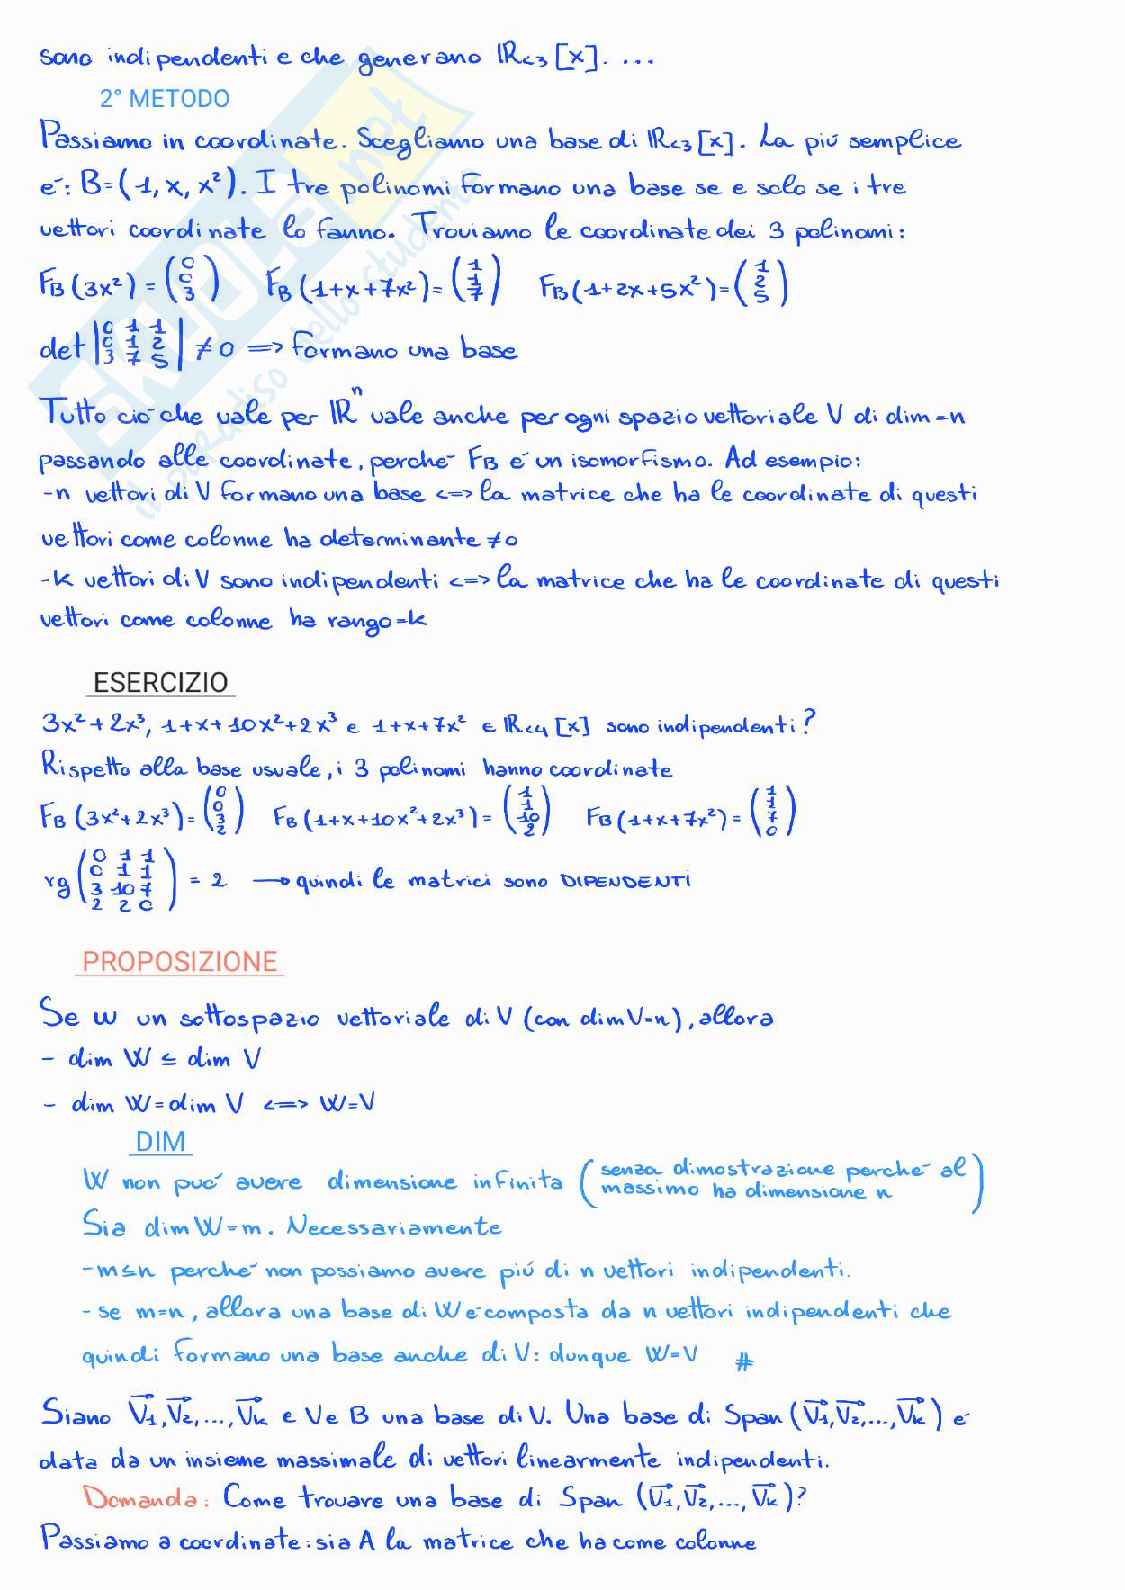 sono indipendenti e che generano ℝ<3[x]. ...
2° METODO
Passiamo in coordinate. Scegliamo una base di ℝ<3[x]. La piú semplice
e´: B=(1, x, x²). I tre polinomi formano una base se e solo se i tre
vettori coordinate lo fanno. Troviamo le coordinate dei 3 polinomi:
F_B(3x²) = (0 0 3) F_B(1+x+7x²) = (1 1 7) F_B(1+2x+5x²) = (1 2 5)
det |0 1 1 / 0 1 2 / 3 7 5| ≠ 0 => formano una base
Tutto ció che vale per ℝⁿ vale anche per ogni spazio vettoriale V di dim=n
passando alle coordinate, perche´ F_B e´ un isomorfismo. Ad esempio:
-n vettori di V formano una base <=> la matrice che ha le coordinate di questi
vettori come colonne ha determinante ≠0
-k vettori di V sono indipendenti <=> la matrice che ha le coordinate di questi
vettori come colonne ha rango=k
ESERCIZIO
3x²+2x³, 1+x+10x²+2x³ e 1+x+7x² ∈ ℝ<4[x] sono indipendenti?
Rispetto alla base usuale, i 3 polinomi hanno coordinate
F_B(3x²+2x³) = (0 0 3 2) F_B(1+x+10x²+2x³) = (1 1 10 2) F_B(1+x+7x²) = (1 1 7 0)
rg (0 1 1 / 0 1 1 / 3 10 7 / 2 2 0) = 2 → quindi le matrici sono DIPENDENTI
PROPOSIZIONE
Se W un sottospazio vettoriale di V (con dimV=n), allora
- dim W ≤ dim V
- dim W=dim V <=> W=V
DIM
W non puo´ avere dimensione infinita (senza dimostrazione perche´ al
massimo ha dimensione n)
Sia dim W=m. Necessariamente
-m≤n perche´ non possiamo avere piú di n vettori indipendenti.
-se m=n, allora una base di W e´ composta da n vettori indipendenti che
quindi formano una base anche di V: dunque W=V #
Siano v⃗1, v⃗2, ..., v⃗k e V e B una base di V. Una base di Span (v⃗1, v⃗2, ..., v⃗k) e´
data da un insieme massimale di vettori linearmente indipendenti.
Domanda: Come trovare una base di Span (v⃗1, v⃗2, ..., v⃗k)?
Passiamo a coordinate: sia A la matrice che ha come colonne
SKUOLA.net
il paradiso dello studente